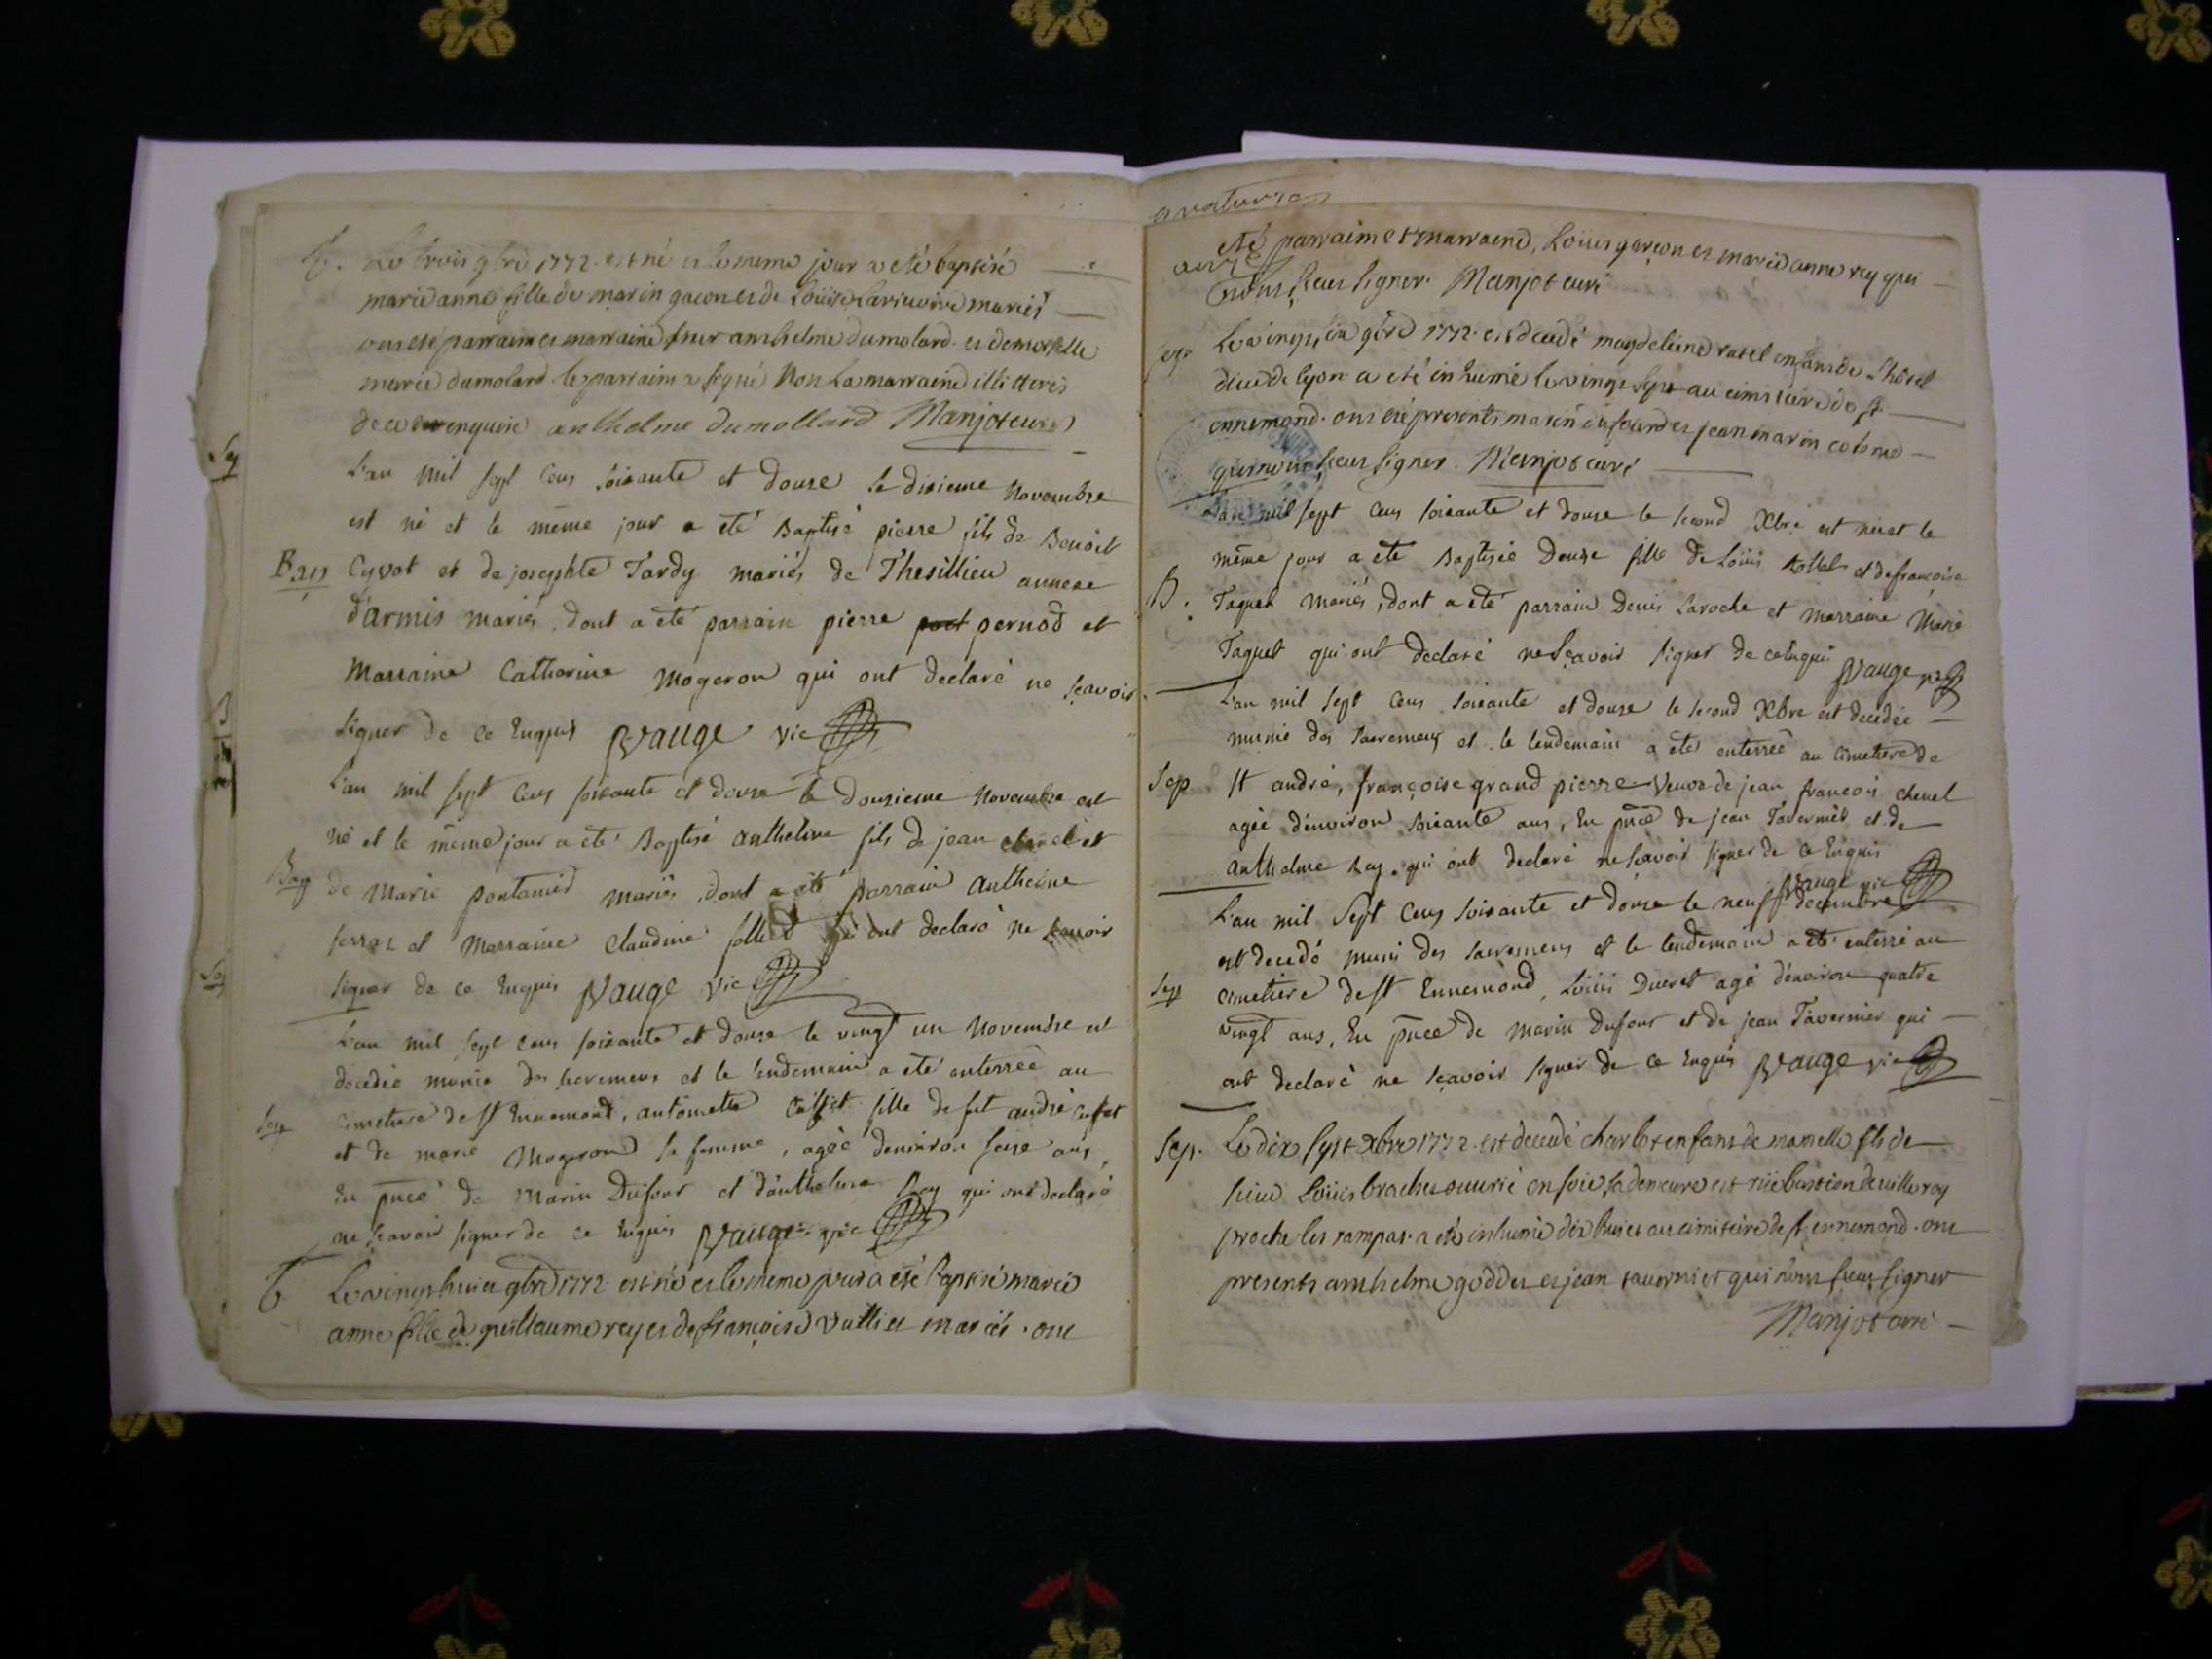 B.
Le trois 9bre 1772 est né et le meme jour a eté baptisé
marie anne fille de marin gacon et de Loüise Lariuoire mariés
ont eté parraim et marraine sieur anthelme dumolard et demoiselle
marie dumolard le parraim a signé Non La marraine illitteré
de ce enquise anthelme dumollard Manjot curé
L'an mil sept cens soixante et douze le dixieme Novembre
est né et le même jour a eté Baptisé pierre fils de Benoit
Bap Cyvot et de josephte Tardy mariés de Thesillieu annexe
d'armis mariés, dont a eté parrain pierre pernod et
Marraine Catherine Mogeron qui ont declaré ne sçavoir
signer de ce Enquis Vauge vic
L'an mil sept cens soixante et douze le douzieme Novembre est
né et le même jour a eté Baptisé anthelme fils de jean et
Bap de Marie pontanier mariés, dont a eté parrain anthelme
ferraz et Marraine Claudine qui ont declaré ne scavoir
signer de ce Enquis Vauge vic
L'an mil sept cens soixante et douze le vingt un Novembre est
decedée munie des sacremens et le lendemain a eté enterrée au
Sep cimetiere de st Ennemond, antoinette Cusset fille de fut andré Cusset
et de marie Mogeron sa femme, agée d'environ seise ans,
En pnce de Marin Dufour et d'anthelme Rey qui ont declaré
ne sçavoir signer de ce Enquis Vauge vic
B Le vingt huit 9bre 1772 est né et le meme jour a eté baptisé marie
anne fille de guillaume rey et de françoise Vullier mariés. ont
eté parraim et marraine, Loüis garçon et marie anne rey qui
nont sceu signer. Manjot curé
sep Le vingt six 9bre 1772. est decedé magdeleine ratel enfant de L'hôtel
dieu de lyon a eté inhumé le vingt sept au cimitiere de st
ennemond. ont eté presents marin dufour et jean marin
qui nont sceu signer. Manjot curé
L'an mil sept cens soixante et douze le second Xbre est née et le
même jour a eté Baptisée Denise fille de Loüis et de françoise
B. Taquet mariés, dont a eté parrain Denis Laroche et marraine Marie
Taquet qui ont declaré ne sçavoir signer de ce enquis Vauge vic
L'an mil sept cens soixante et douze le second Xbre est decedée
munie des sacremens et le lendemain a eté enterrée au cimetiere de
Sep st andré, françoise grand pierre Veuve de jean françois chenel
agée d'environ soixante ans, En pnce de jean Tavernier et de
anthelme Rey, qui ont declaré ne sçavoir signer de ce Enquis
Vauge vic
L'an mil sept cens soixante et douze le neuf decembre
est decedé muni des sacremens et le lendemain a eté enterré au
Sep cimetiere de st Ennemond, Loüis Ducret agé d'environ quatre
vingt ans, En pnce de Marin Dufour et de jean Tavernier qui
ont declaré ne sçavoir signer de ce Enquis Vauge vic
Sep. Le dix sept Xbre 1772. est decedé charlot enfant de mamelle fils de
sieur Loüis brachet ouurié en soie, sa demeure est rüe bastion de villeroy
proche les rampar. a eté inhumé dix huit au cimitiere de st ennemond. ont
presents anthelme goddet et jean tavernier qui nont sceu signer
Manjot curé